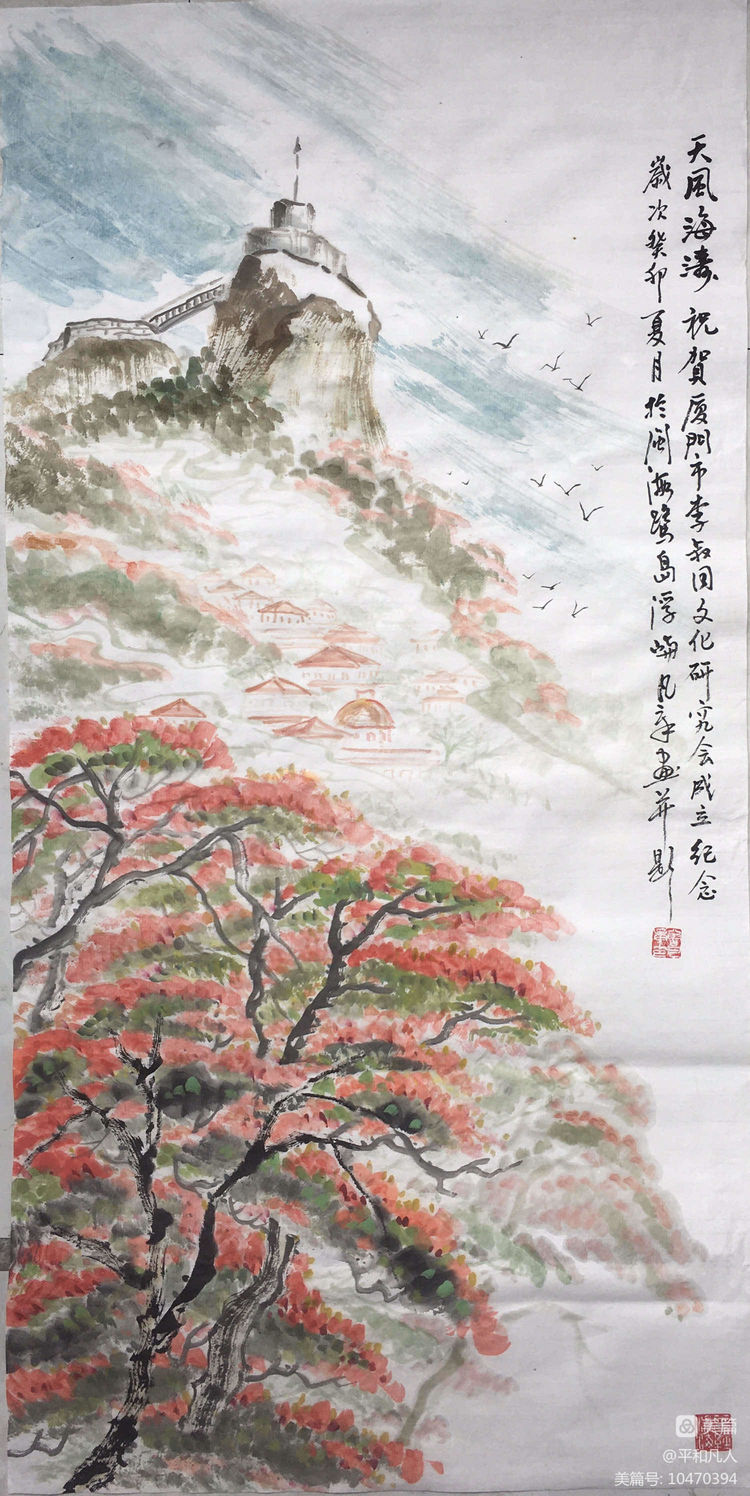 天風海濤 祝賀厦門市李叔同文化研究会成立紀念
嵗次癸卯夏月於閩海鷺島浮嶼凡辛画并題
美篇
@平和凡人
美篇号: 10470394